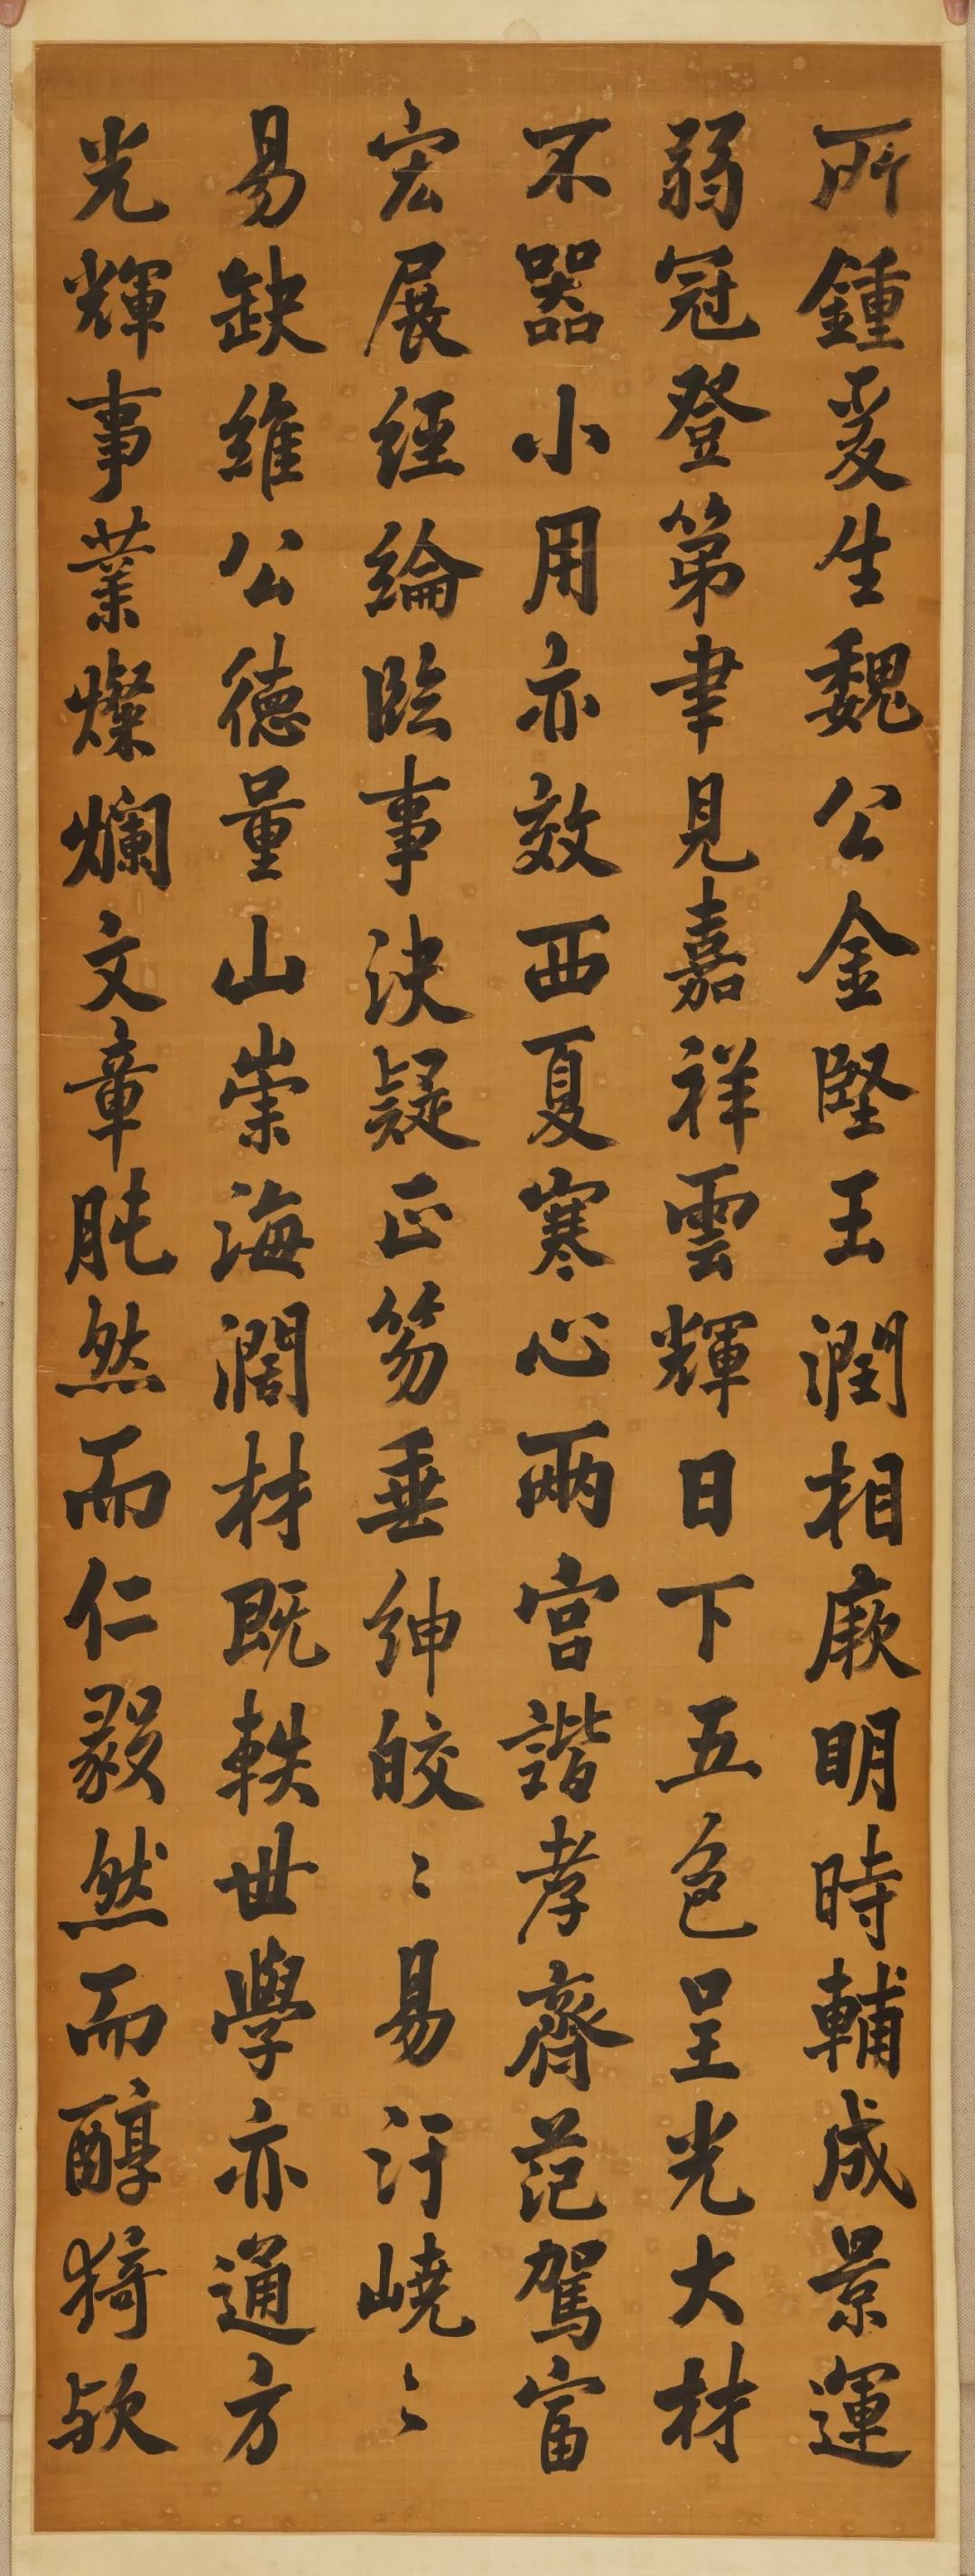 所鍾爰生魏公金堅玉潤相厥明時輔成景運
弱冠登第聿見嘉祥雲輝日下五色呈光大材
不器小用亦效西夏寒心兩宮諧孝齊范駕富
宏展經綸臨事決疑正笏垂紳皎〻易汙嶢〻
易缺維公德量山崇海濶材既軼世學亦通方
光輝事業燦爛文章肫然而仁毅然而醇猗歟